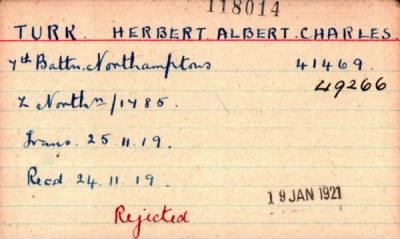 118014
TURK. HERBERT ALBERT CHARLES.
7th Battn. Northamptons 41469.
49266
Z Northn/1485.
Trans. 25.11.19.
Recd 24.11.19.
19 JAN 1921
Rejected